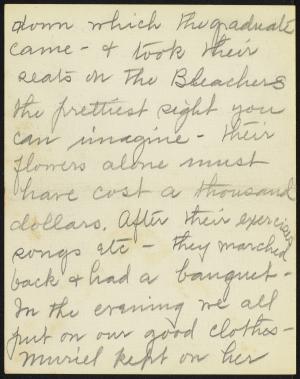 down which the graduate
came - & took their
seats on the Bleachers
the prettiest sight you
can imagine - their
flowers alone must
have cost a thousand
dollars. After their exercises
songs etc - they marched
back & had a banquet -
In the evening we all
put on our good clothes -
Muriel kept on her